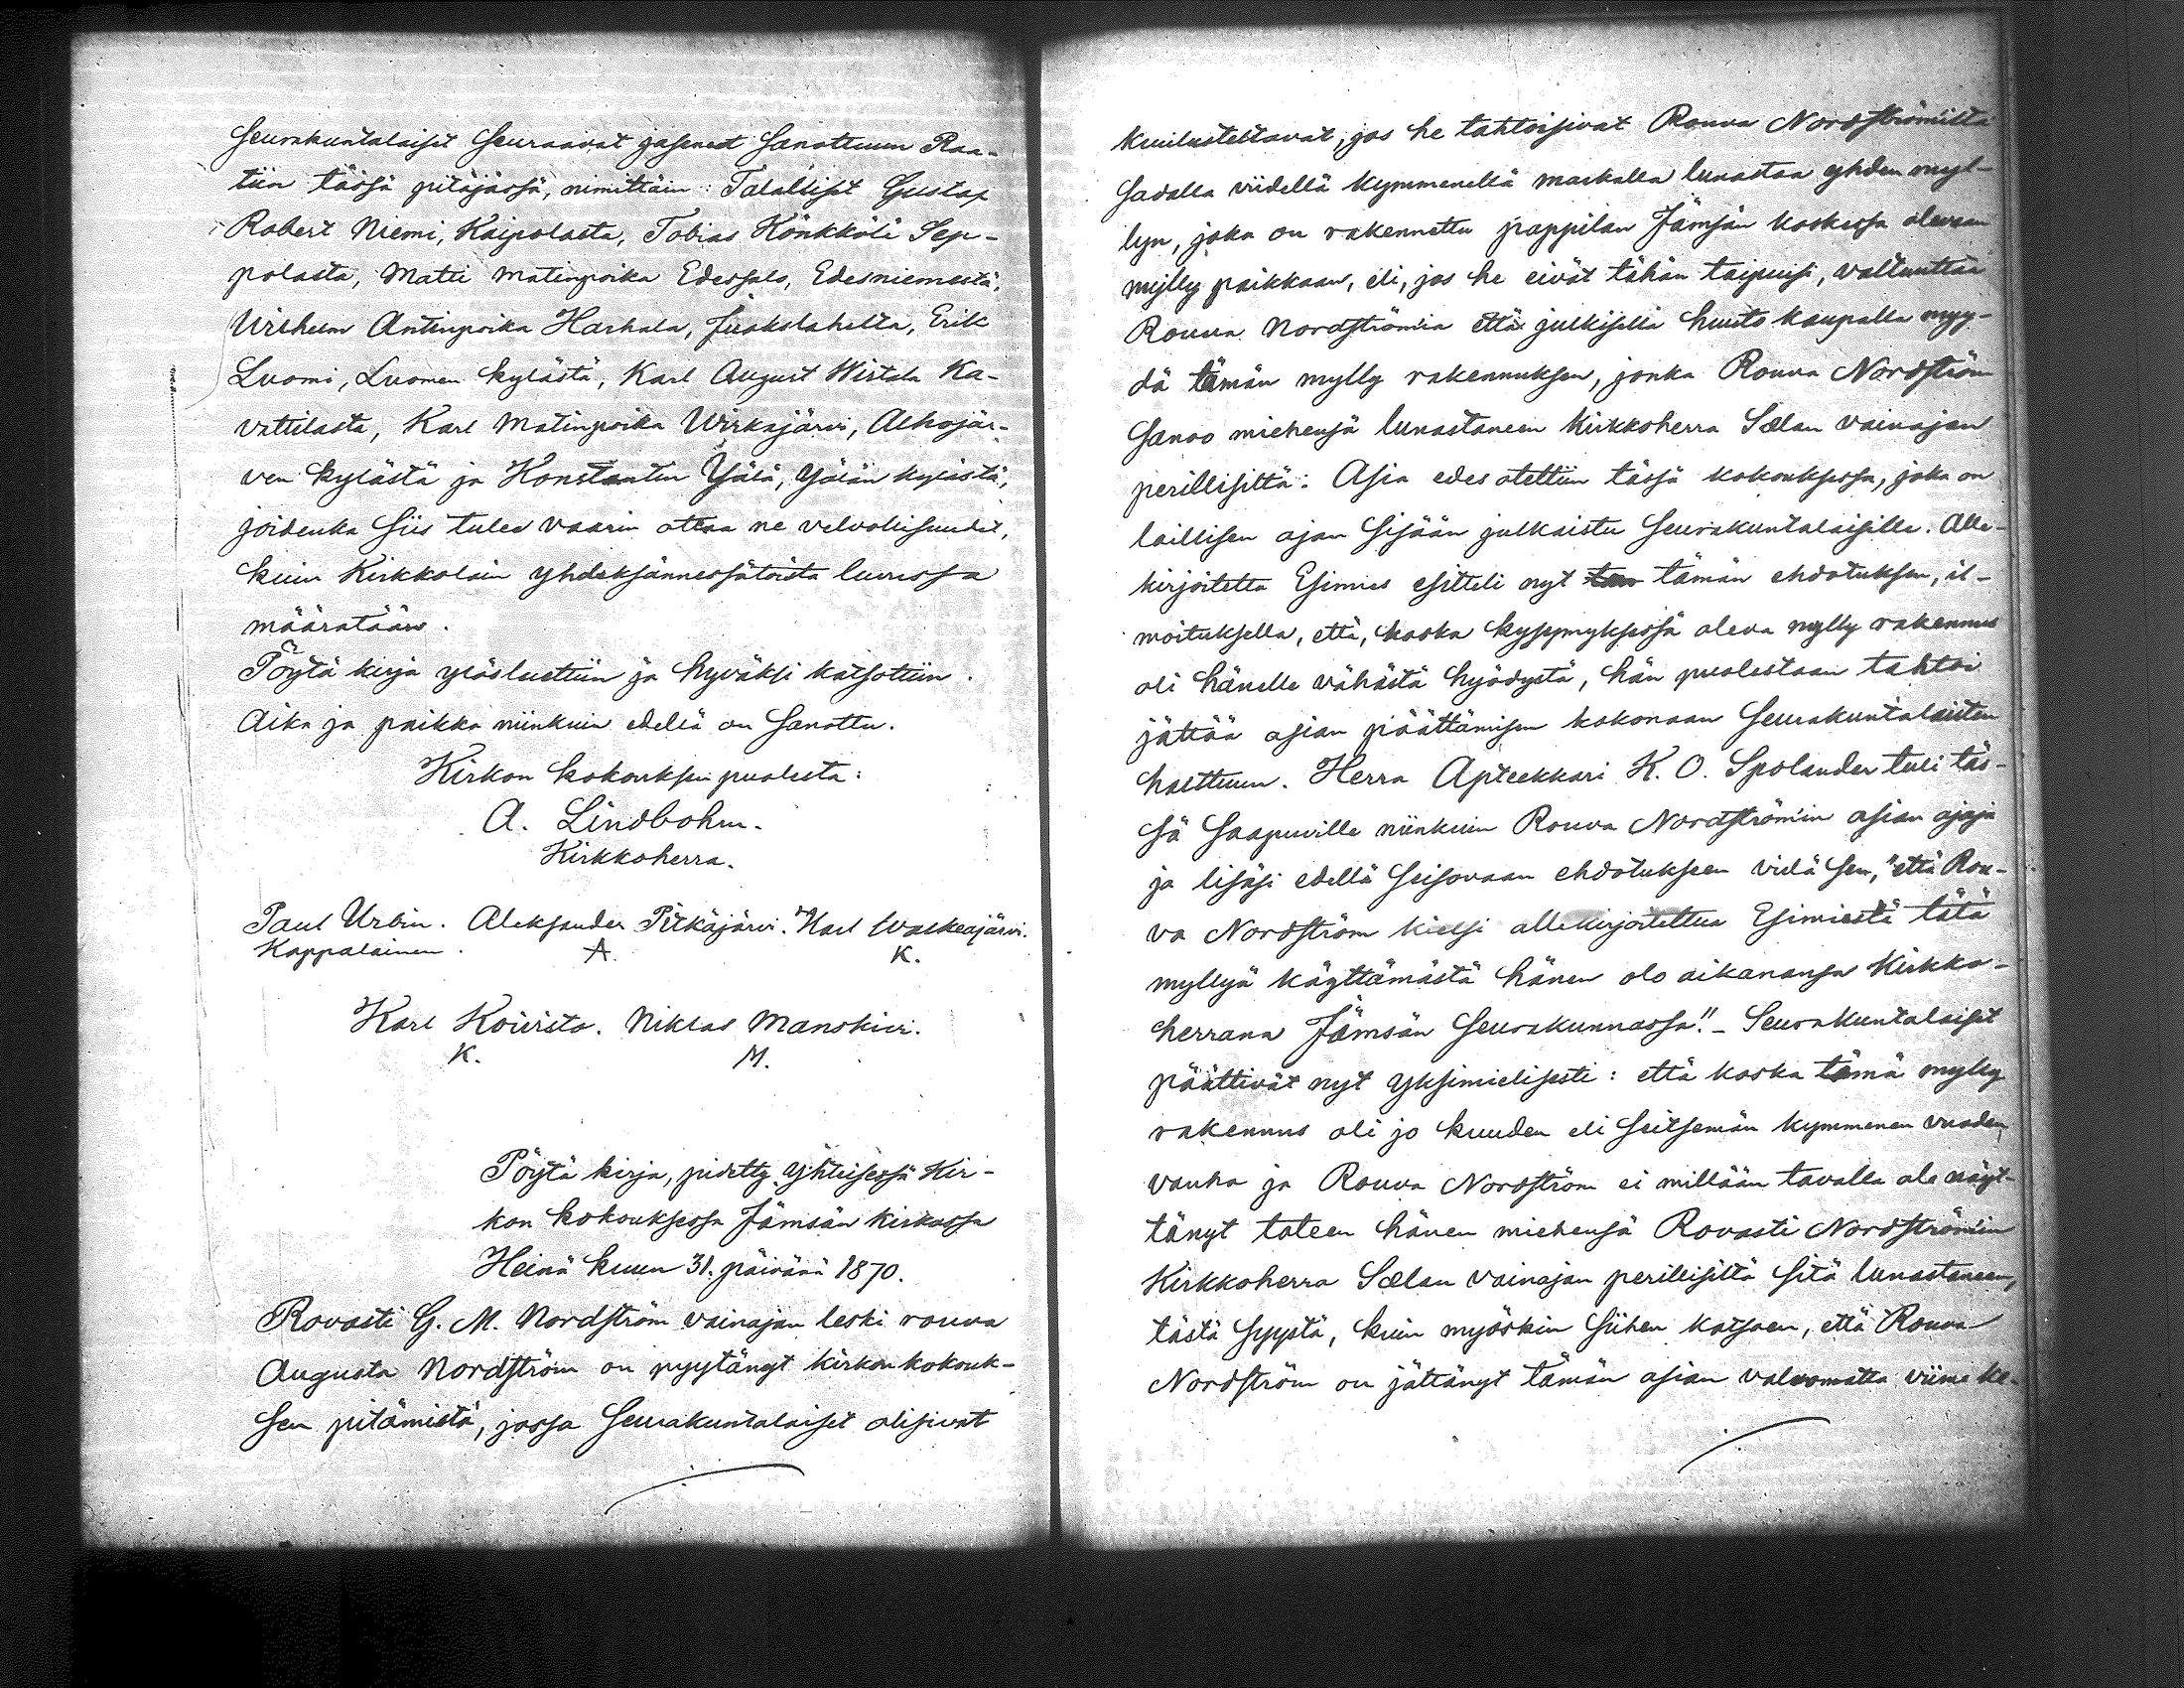 Seurakuntalaiset seuraavat jäsenet sanottuun Raa-
tiin tässä pitäjässä, nimittäin: Talalliset Gustaf
Robert Niemi, Kaipolasta, Tobias Könkkölä Sep-
polasta, Matti Matinpoika Edessalo, Edesniemestä,
Wilhelm Antinpoika Harhala, Juokslahelta, Erik
Luomi, Luomen kylästä, Karl August Wirtala Ka-
vattilasta, Karl Matinpoika Wirkajärvi, Alhojär-
ven kylästä ja Konstantin Ylälä, Ylälän kylästä,
joidenka siis tulee vaarin ottaa ne velvollisuudet,
kuin Kirkkolain yhdeksännessätoista luvussa
määrätään.
Pöytä kirja ylösluettiin ja hyväksi katsottiin.
Aika ja paikka niinkuin edellä on sanottu.
Kirkon kokouksen puolesta:
A. Lindbohm.
Kirkkoherra.
Paul Urbin. Aleksander Pitkäjärvi. Karl Walkeajärvi.
Kappalainen. A. K.
Karl Koivisto. Niklas Manskivi.
K. M.
Pöytä kirja, pidetty yhteisessä Kir-
kon kokouksessa Jämsän kirkossa
Heinä kuun 31. päivänä 1870.
Rovasti G. M. Nordström vainajan leski rouva
Augusta Nordström on pyytänyt kirkon kokouk-
sen pitämistä, jossa Seurakuntalaiset olisivat
kuulusteltavat, jos he tahtoisivat Rouva Nordströmiltä
sadalla viidellä kymmenellä markalla lunastaa yhden myl-
lyn, joka on rakennettu pappilan Jämsän koskessa olevaan
mylly paikkaan, eli, jos he eivät tähän taipuisi, valtuuttaa
Rouva Nordströmiä että julkisella huuto kaupalla myy-
dä tämän mylly rakennuksen, jonka Rouva Nordström
sanoo miehensä lunastaneen kirkkoherra Sælan vainajan
perillisiltä. Asia edes otettiin tässä kokouksessa, joka on
laillisen ajan sisään julkaistu Seurakuntalaisille. Alle-
kirjoitettu Esimies esitteli nyt tämän ehdotuksen, il-
moituksella, että, koska kysymyksessä oleva mylly rakennus
oli hänelle vähästä hyödystä, hän puolestaan tahtoi
jättää asian päättämisen kokonaan Seurakuntalaisten
halttuun. Herra Apteekkari K. O. Spolander tuli täs-
sä saapuville niinkuin Rouva Nordströmin asian ajaja
ja lisäsi edellä seisovaan ehdotukseen vielä sen, "että Rou-
va Nordström kielsi allekirjoitettua Esimiestä tätä
myllyä käyttämästä hänen olo aikanansa Kirkko-
herrana Jämsän Seurakunnassa". - Seurakuntalaiset
päättivät nyt yksimielisesti: että koska tämä mylly
rakennus oli jo kuuden eli seitsemän kymmenen vuoden
vanha ja Rouva Nordström ei millään tavalla ole näyt-
tänyt toteen hänen miehensä Rovasti Nordströmin
Kirkkoherra Sælan vainajan perillisiltä sitä lunastaneen,
tästä syystä, kuin myöskin siihen katsoen, että Rouva
Nordström on jättänyt tämän asian valvomatta viime ke-